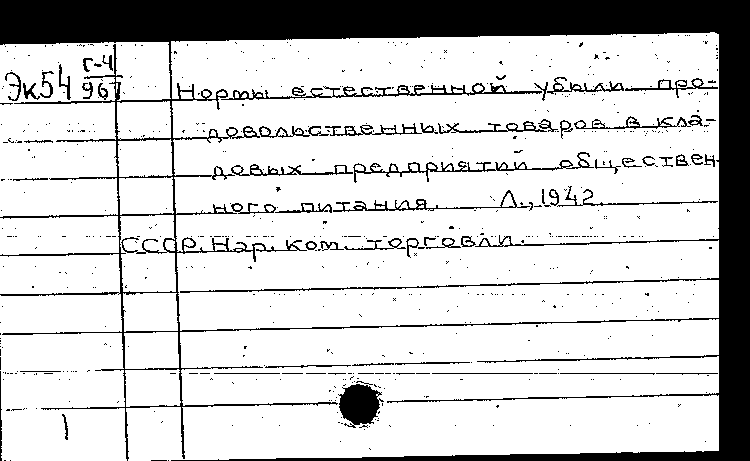 Эк54 Г-4/967 Нормы естественной убыли про-
довольственных товаров в кла-
довых предприятий обществен-
ного питания. Л., 1942.
СССР. Нар. ком. торговли.
1